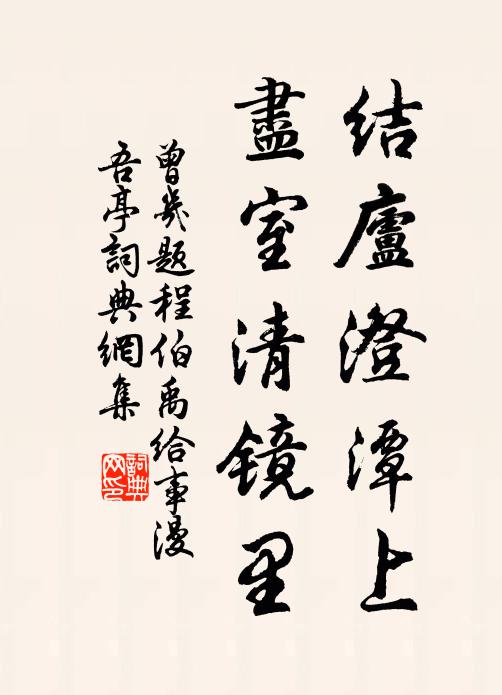 結廬澄潭上
盡室清鏡里
曾幾題程伯禹給事漫
吾亭詞典網集
詞典
网印